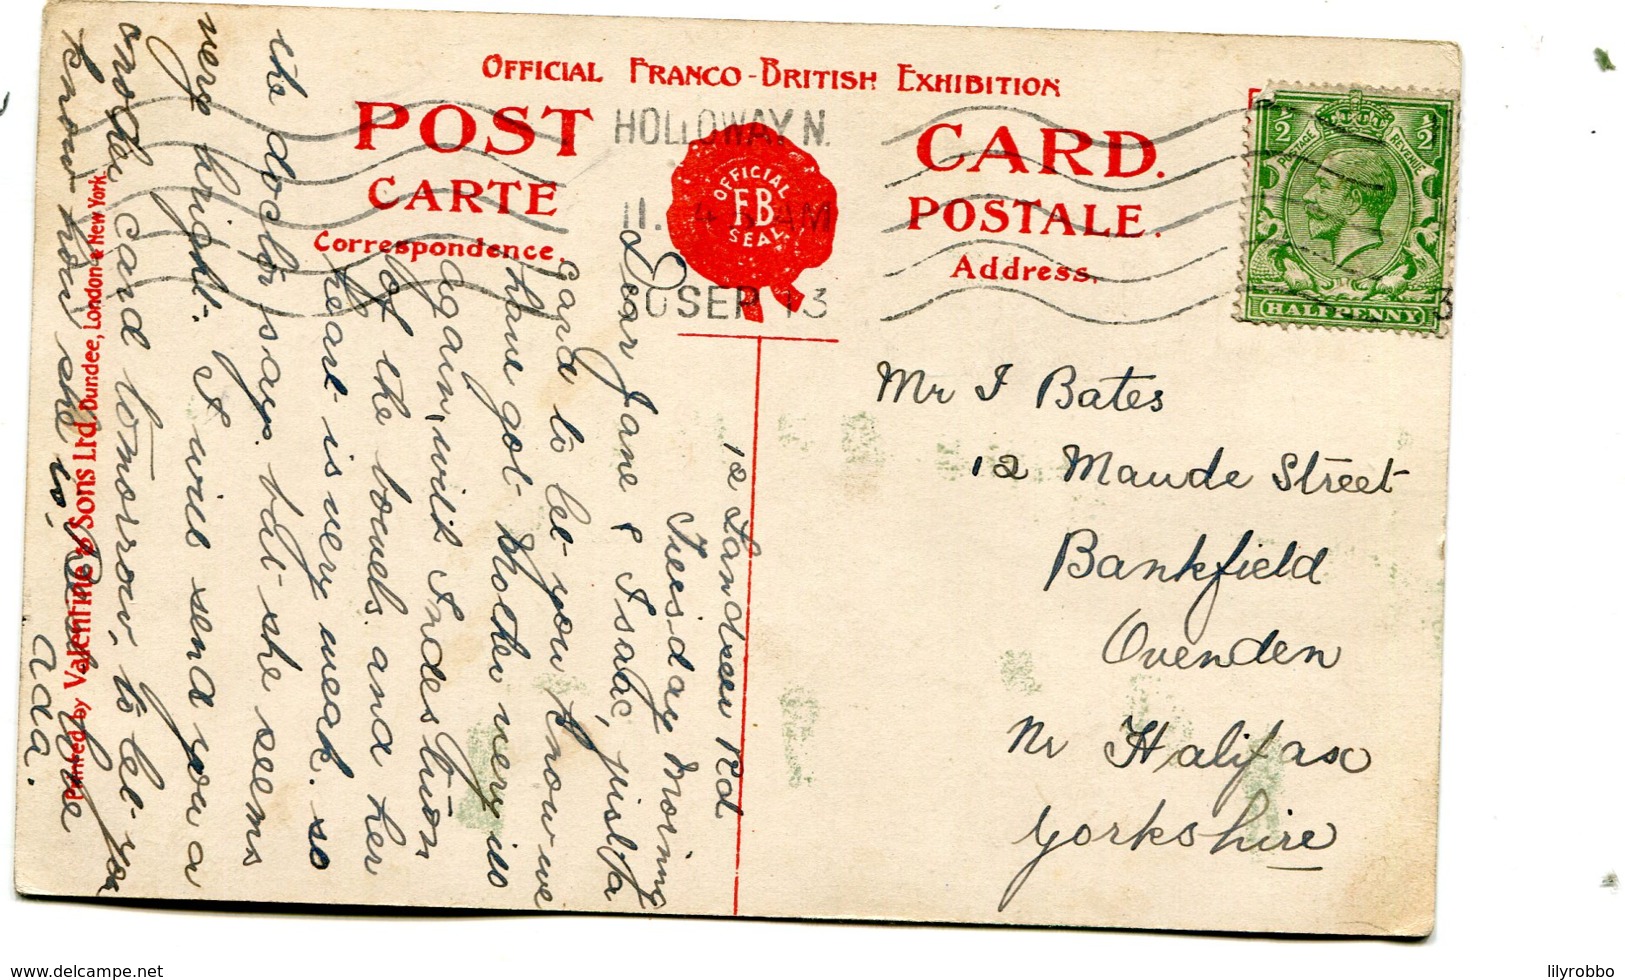 OFFICIAL FRANCO-BRITISH EXHIBITION
POST CARD.
CARTE POSTALE.
Correspondence.
Address.
OFFICIAL
FB
SEAL
HOLLOWAY N.
11. 45 AM
SEP 13
3
½ ½
POSTAGE REVENUE
HALFPENNY
12 Landseer Rd
Tuesday Morning
Dear Jane & Isaac, just a
Card to let you know we
have got Mother very ill
again, with Indestion
of the bowels and her
heart is very weak. so
the doctor says. but she seems
very bright. I will send you a
another card tomorrow, to let you
know how she is. Best love
Ada.
Mr I Bates
12 Maude Street
Bankfield
Ovenden
Nr Halifax
Yorkshire
Printed by Valentine & Sons Ltd. Dundee, London & New York.
lilyrobbo
www.delcampe.net